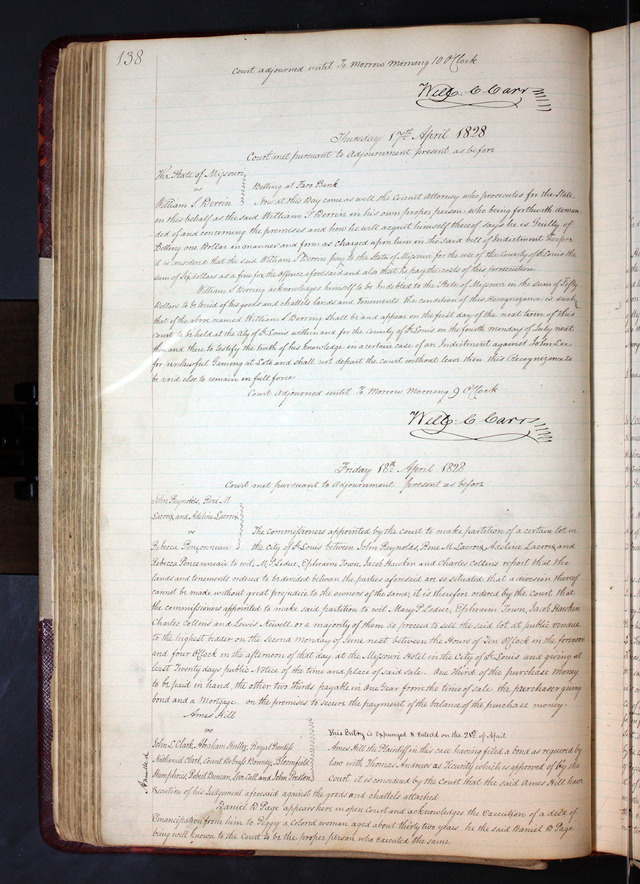 138
Court adjourned until To Morrow Morning 10 O'Clock
Will. C. Carr
Thursday 17th April 1828
Court met pursuant to Adjournment present as before
The State of Missouri
vs
William S Derrin
Betting at Faro Bank
Now at this Day come as well the Circuit Attorney who prosecutes for the State
in this behalf as the said William S Derrin in his own proper person who being forthwith deman
ded of and concerning the premises and how he will acquit himself thereof says he is Guilty of
Betting one Dollar in manner and form as charged upon him in the said bill of Indictment Therefore
it is considered that the said William S Derrin pay to the State of Missouri for the use of the County of St Louis the
sum of Six dollars as a fine for the offence aforesaid and also that he pay the costs of this prosecution.
William S Derring acknowledges himself to be Indebted to the State of Missouri in the sum of Fifty
Dollars to be levied of his goods and chattels lands and tenements the condition of this Recognizance is such
that if the above named William S Derring shall be and appear on the first day of the next term of this
Court to be held at the City of St Louis within and for the County of St Louis on the fourth monday of July next
then and there to testify the truth of his knowledge in a certain case of an Indictment against John Lee
for unlawful Gaming at Loto and shall not depart the court without leave then this Recognizance to
be void else to remain in full force
Court Adjourned until To Morrow Morning 9 O'Clock
Will. C. Carr
Friday 18th April 1828
Court met pursuant to Adjournment present as before
John Reynolds, Pene M
Lacroix and Adeline Lacroix
vs
Rebecca Penconneau
The Commissioners appointed by the Court to make partition of a certain lot in
the City of St Louis between John Reynolds, Pene M. Lacroix Adeline Lacroix and
Rebecca Penconneau to wit, M. P. Leduc, Ephraim Town, Jacob Hawken and Charles Collins report that the
lands and tenements ordered to be divided between the parties aforesaid are so situated that a division thereof
cannot be made without great prejudice to the owners of the same; it is therefore ordered by the Court that
the commissioners appointed to make said partition to wit. Mary P Leduc, Ephraim Town, Jacob Hawken
Charles Collins and Lewis Newell or a majority of them do proceed to sell the said lot at public vendue
to the highest bidder on the Second Monday of June next between the Hours of Ten O'Clock in the forenoon
and four O'Clock in the afternoon of that day at the Missouri Hotel in the City of St Louis and giving at
least Twenty days public Notice of the time and place of said sale. One Third of the purchase money
to be paid in hand, the other two thirds payable in One Year from the time of sale the purchaser giving
bond and a Mortgage on the premises to secure the payment of the balance of the purchase money.
Ames Hill
vs
John C Clark, Abraham Huller,
Nathaniel Clark, Count Romney, Bloomfield
Humphries Robert Duncan, Levi Call and John Preston
Annulled
This Entry is Expunged & Entered on the 28th of April
Ames Hill the Plaintiff in this case having filed a bond as required by
law with Thomas Andrews as Security which is approved of by the
Court it is considered by the Court that the said Ames Hill have
execution of his Judgment aforesaid against the goods and chattels attached
Daniel D Page appears here in open Court and acknowledges the Execution of a deed of
Emancipation from him to Peggy a colored woman aged about thirty two years he the said Daniel D. Page
being well known to the Court to be the proper person who executed the same